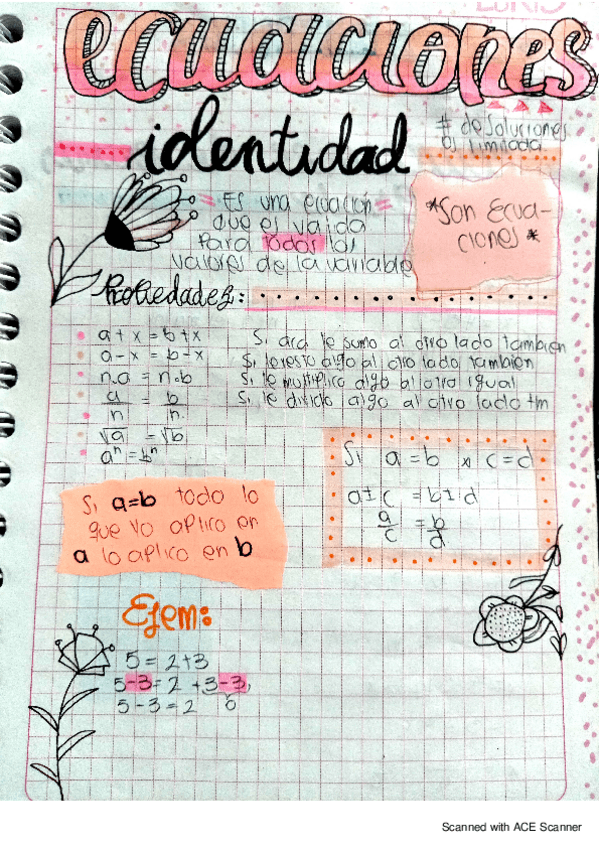 ecuaciones
identidad
# de soluciones
es limitada
= Es una ecuación =
que es valida
Para todos los
valores de la variable
*Son Ecua-
ciones *
Propiedades:
a + x = b + x Si acá le sumo al otro lado tambien
a - x = b - x Si le resto algo al otro lado tambien
n.a = n.b Si le multiplico algo al otro igual
a/n = b/n. Si le divido algo al otro lado tm
√a = √b
aⁿ = bⁿ
Si a=b c=d
a ± c = b ± d
a/c = b/d.
Si a=b todo lo
que yo aplico en
a lo aplico en b
Ejem:
5 = 2+3
5-3 = 2 +3-3
5-3 = 2 0
Scanned with ACE Scanner